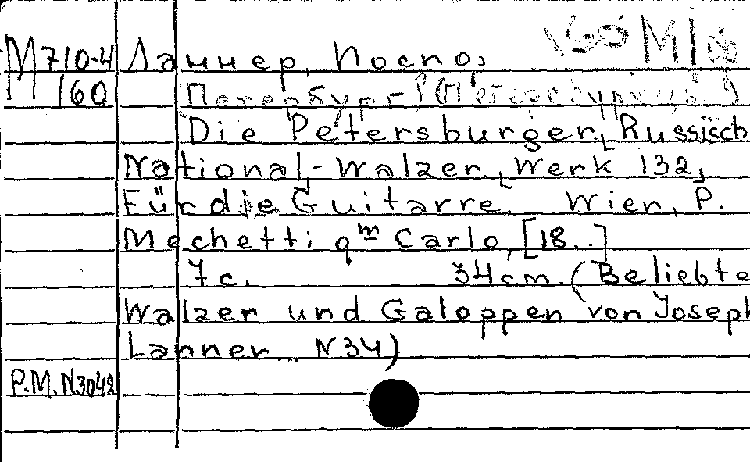 М 710-4 Ланнер, Иоспо,
160
Die Petersburger, Russisch
National-Walzer, Werk 132,
Für die Guitarre. Wien, P.
Mechetti qm Carlo, [18..]
7 c. 34 cm. (Beliebte
Walzer und Galoppen von Joseph
Lanner. N34)
P.M. N3048